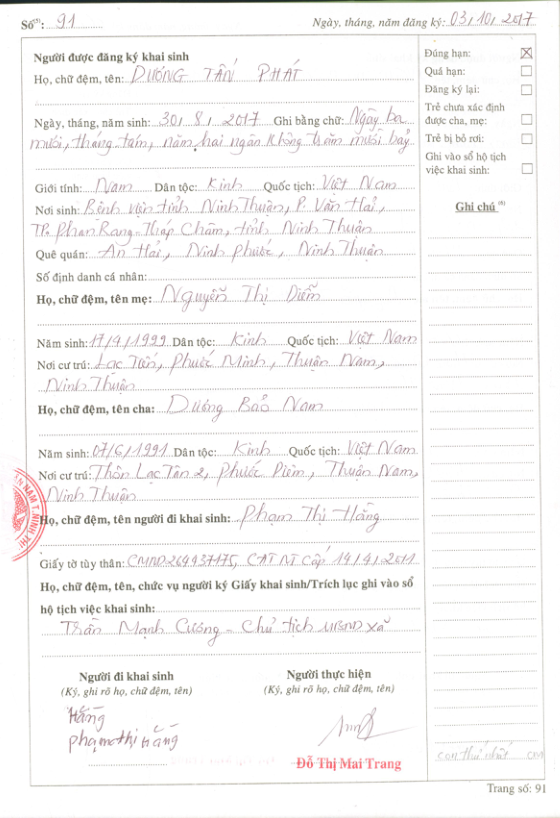 Số⁽⁵⁾: 91 Ngày, tháng, năm đăng ký: 03, 10, 2017
Người được đăng ký khai sinh
Họ, chữ đệm, tên: DƯƠNG TẤN PHÁT
Ngày, tháng, năm sinh: 30, 8, 2017 Ghi bằng chữ: Ngày ba
mươi, tháng tám, năm hai ngàn không trăm mười bảy
Giới tính: Nam Dân tộc: Kinh Quốc tịch: Việt Nam
Nơi sinh: Bệnh viện tỉnh Ninh Thuận, P. Văn Hải,
TP. Phan Rang - Tháp Chàm, tỉnh Ninh Thuận
Quê quán: An Hải, Ninh Phước, Ninh Thuận
Số định danh cá nhân:
Họ, chữ đệm, tên mẹ: Nguyễn Thị Diễm
Năm sinh: 17/9/1999 Dân tộc: Kinh Quốc tịch: Việt Nam
Nơi cư trú: Lạc Tiến, Phước Minh, Thuận Nam,
Ninh Thuận
Họ, chữ đệm, tên cha: Dương Bảo Nam
Năm sinh: 07/6/1991 Dân tộc: Kinh Quốc tịch: Việt Nam
Nơi cư trú: Thôn Lạc Tân 2, Phước Diêm, Thuận Nam,
Ninh Thuận
Họ, chữ đệm, tên người đi khai sinh: Phạm Thị Hằng
Giấy tờ tùy thân: CMND 264937175, CAT NT Cấp 14/4/2011
Họ, chữ đệm, tên, chức vụ người ký Giấy khai sinh/Trích lục ghi vào sổ
hộ tịch việc khai sinh:
Trần Mạnh Cường - Chủ tịch UBND xã
Người đi khai sinh
(Ký, ghi rõ họ, chữ đệm, tên)
Hằng
phạm thị Hằng
Người thực hiện
(Ký, ghi rõ họ, chữ đệm, tên)
Đỗ Thị Mai Trang
Đúng hạn:
Quá hạn:
Đăng ký lại:
Trẻ chưa xác định
được cha, mẹ:
Trẻ bị bỏ rơi:
Ghi vào sổ hộ tịch
việc khai sinh:
Ghi chú ⁽⁶⁾
con thứ nhất
Trang số: 91